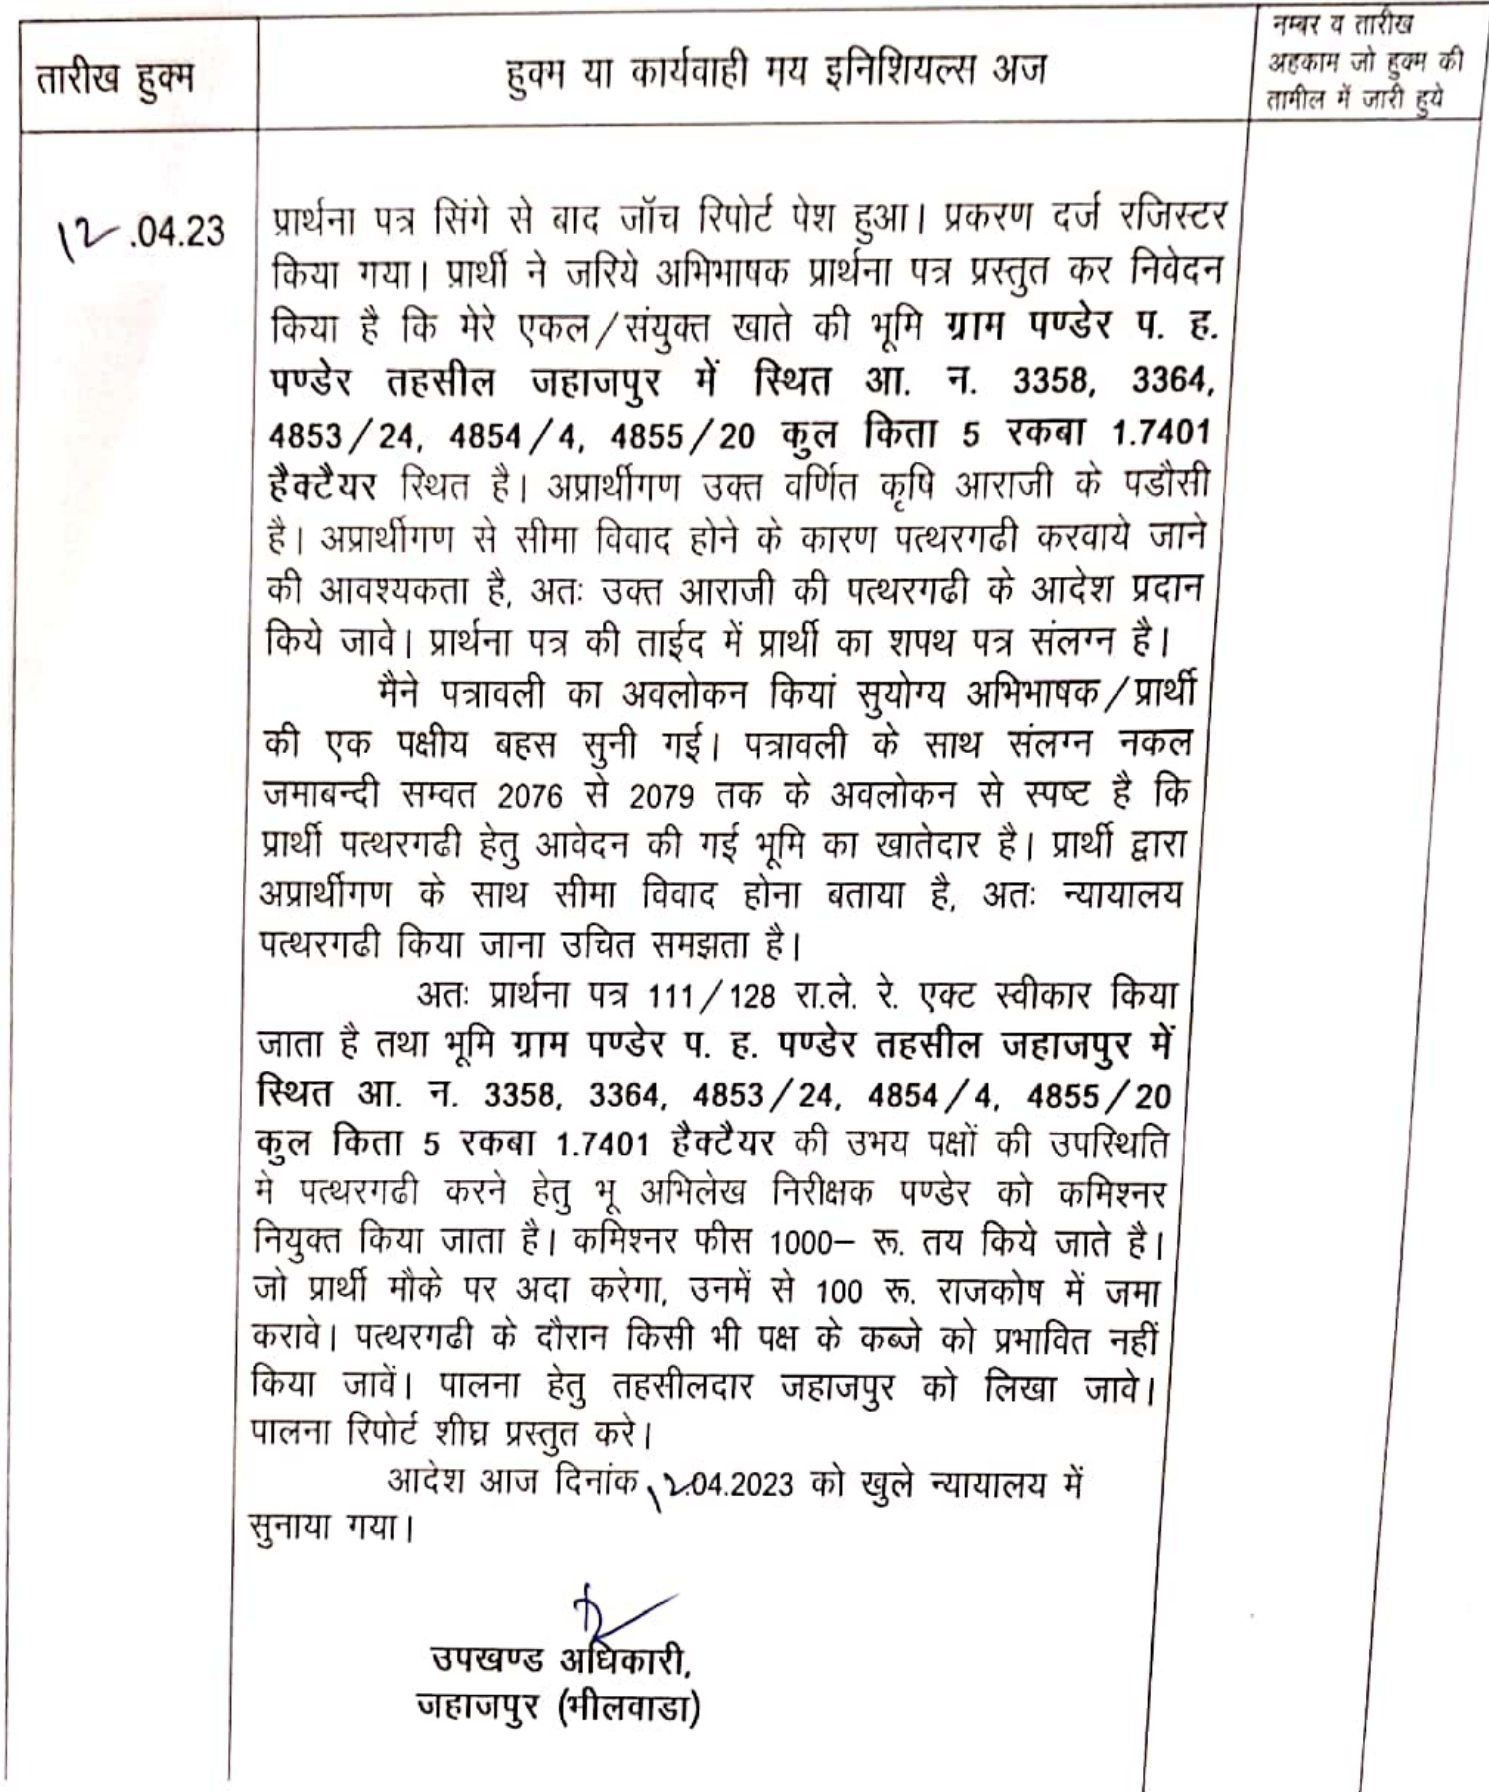 तारीख हुक्म
हुक्म या कार्यवाही मय इनिशियल्स अज
नम्बर व तारीख
अहकाम जो हुक्म की
तामील में जारी हुये
12.04.23
प्रार्थना पत्र सिंगे से बाद जॉच रिपोर्ट पेश हुआ। प्रकरण दर्ज रजिस्टर
किया गया। प्रार्थी ने जरिये अभिभाषक प्रार्थना पत्र प्रस्तुत कर निवेदन
किया है कि मेरे एकल/संयुक्त खाते की भूमि ग्राम पण्डेर प. ह.
पण्डेर तहसील जहाजपुर में स्थित आ. न. 3358, 3364,
4853/24, 4854/4, 4855/20 कुल किता 5 रकबा 1.7401
हैक्टैयर स्थित है। अप्रार्थीगण उक्त वर्णित कृषि आराजी के पडौसी
है। अप्रार्थीगण से सीमा विवाद होने के कारण पत्थरगढी करवाये जाने
की आवश्यकता है, अतः उक्त आराजी की पत्थरगढी के आदेश प्रदान
किये जावे। प्रार्थना पत्र की ताईद में प्रार्थी का शपथ पत्र संलग्न है।
मैने पत्रावली का अवलोकन कियां सुयोग्य अभिभाषक/प्रार्थी
की एक पक्षीय बहस सुनी गई। पत्रावली के साथ संलग्न नकल
जमाबन्दी सम्वत 2076 से 2079 तक के अवलोकन से स्पष्ट है कि
प्रार्थी पत्थरगढी हेतु आवेदन की गई भूमि का खातेदार है। प्रार्थी द्वारा
अप्रार्थीगण के साथ सीमा विवाद होना बताया है, अतः न्यायालय
पत्थरगढी किया जाना उचित समझता है।
अतः प्रार्थना पत्र 111/128 रा.ले. रे. एक्ट स्वीकार किया
जाता है तथा भूमि ग्राम पण्डेर प. ह. पण्डेर तहसील जहाजपुर में
स्थित आ. न. 3358, 3364, 4853/24, 4854/4, 4855/20
कुल किता 5 रकबा 1.7401 हैक्टैयर की उभय पक्षों की उपस्थिति
मे पत्थरगढी करने हेतु भू अभिलेख निरीक्षक पण्डेर को कमिश्नर
नियुक्त किया जाता है। कमिश्नर फीस 1000– रू. तय किये जाते है।
जो प्रार्थी मौके पर अदा करेगा, उनमें से 100 रू. राजकोष में जमा
करावे। पत्थरगढी के दौरान किसी भी पक्ष के कब्जे को प्रभावित नहीं
किया जावें। पालना हेतु तहसीलदार जहाजपुर को लिखा जावे।
पालना रिपोर्ट शीघ्र प्रस्तुत करे।
आदेश आज दिनांक 12.04.2023 को खुले न्यायालय में
सुनाया गया।
उपखण्ड अधिकारी,
जहाजपुर (भीलवाडा)